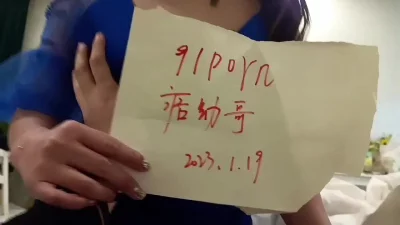 91porn
哥
2023.1.19